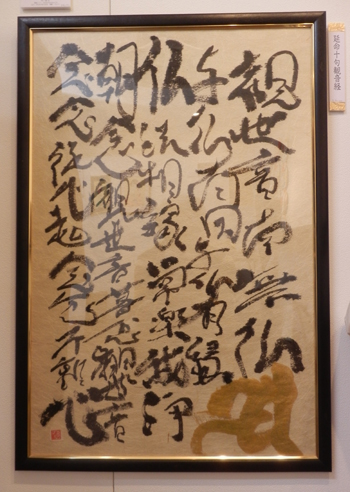 延命十句観音経
観世音南無仏
与仏有因与仏有縁
仏法相縁常楽我浄
朝念観世音暮念観世音
念念従心起念念不離心